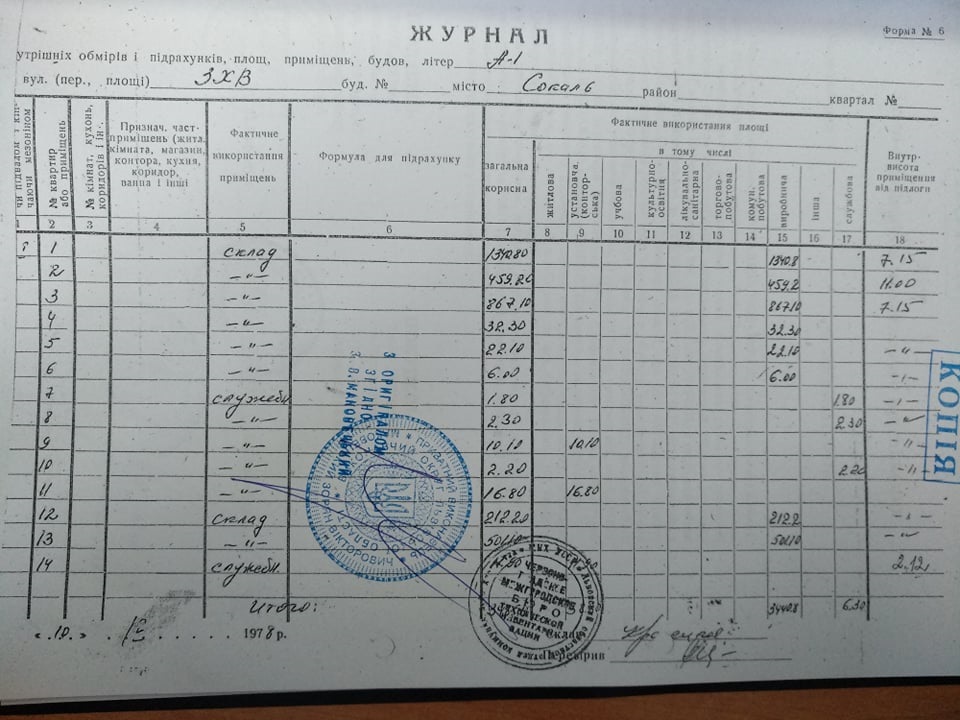 ЖУРНАЛ
Форма № 6
утрішніх обмірів і підрахунків, площ, приміщень, будов, літер А-1
вул. (пер., площі) ЗХВ буд. № місто Сокаль район квартал №
чи підвалом з кін-
чаючи мезоніном
№ квартир
або приміщень
№ кімнат, кухонь,
коридорів і ін.
Признач. част.
приміщень (житл.
кімната, магазин,
контора, кухня,
коридор,
ванна і інші
Фактичне
використання
приміщень
Формула для підрахунку
Фактичне використання площі
загальна
корисна
в тому числі
житлова
установча,
(контор-
ська)
учбова
культурно-
освітня
лікувально-
санітарна
торгово-
побутова
комун.
побутова
виробнича
інша
службова
Внутр-
висота
приміщення
від підлоги
1 2 3 4 5 6 7 8 9 10 11 12 13 14 15 16 17 18
1 склад 1340.80 1340.8 7.15
2 —"— 459.20 459.2 11.00
3 —"— 867.10 867.10 7.15
4 —"— 32.30 32.30
5 —"— 22.10 22.10 —"—
6 —"— 6.00 6.00 —"—
7 служебн. 1.80 1.80 —"—
8 —"— 2.30 2.30 —"—
9 —"— 10.10 10.10 —"—
10 —"— 2.20 2.20 —"—
11 —"— 16.80 16.80
12 склад 212.20 212.2 —"—
13 —"— 501.10 501.10 —"—
14 служебн. 2.12
Итого: 3440.8 6.30
"10." IV 1978 р.
Склав
Перевірив
КОПІЯ
З ОРИГІНАЛОМ
ЗГІДНО
ПРИВАТНИЙ ВИКОНАВЕЦЬ
ВИКОНАВЧИЙ ОКРУГ
ЧЕРВОНО-
ГРАДСКЕ
МЕЖГОРОДСКОЕ
БЮРО
ТЕХНИЧЕСКОЙ
ИНВЕНТАРИ-
ЗАЦИИ